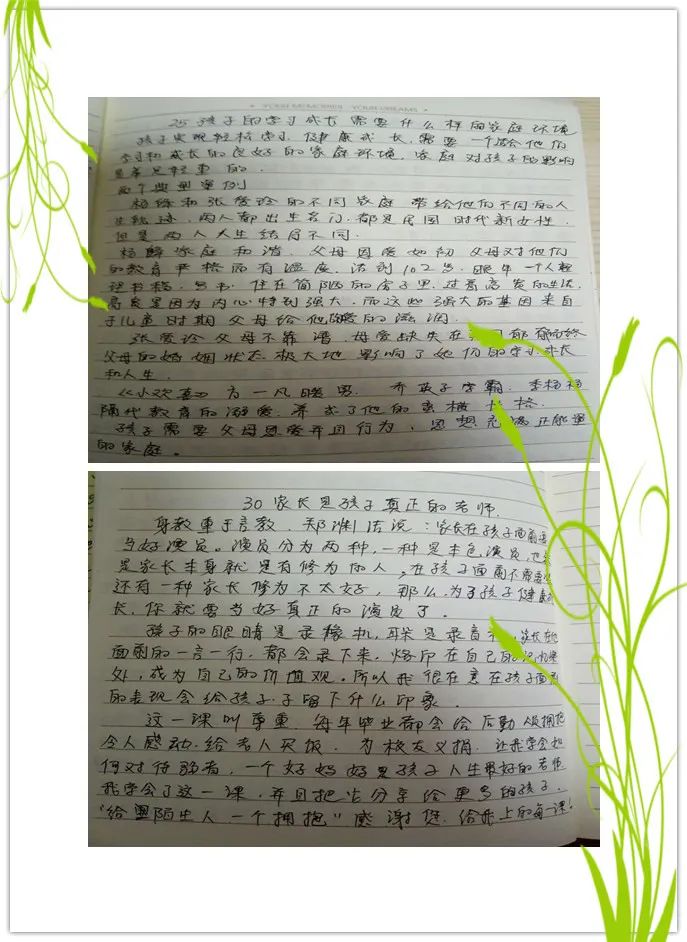 YOUR MEMORIES YOUR DREAMS
25 孩子的学习成长需要什么样的家庭环境
孩子实现轻松学习、健康成长,需要一个适合他们
学习和成长的良好的家庭环境,家庭对孩子的影响
是举足轻重的.
两个典型案例
杨绛和张爱玲的不同家庭 带给他们不同的人
生轨迹,两人都出生名门,都是民国时代新女性.
但是两人人生结局不同.
杨绛家庭和谐.父母恩爱如初 父母对他们
的教育严格而有温度.活到102岁.晚年一个人整
理书稿.写书.住在简陋的房子里.过着高贵的生活.
高贵是因为内心特别强大.而这些强大的基因来自
于儿童时期父母给他温暖的滋润.
张爱玲父母不靠谱.母爱缺失在
父母的婚姻状态.极大地影响了她们的学习.成长
和人生.
《小欢喜》方一凡暖男. 乔英子学霸. 李杨杨
隔代教育的溺爱.养成了他的蛮横性格.
孩子需要父母恩爱并且行为、思想充满正能量
的家庭。
30 家长是孩子真正的老师.
身教重于言教.郑渊洁说:家长在孩子面前要
当好演员。演员分为两种,一种是本色演员,也就
是家长本身就是有修为的人,在孩子面前不需要
还有一种家长修为不太好,那么,为了孩子健康成
长,你就要当好真正的演员了.
孩子的眼睛是录像机,耳朵是录音机,家长在他
面前的一言一行.都会录下来.烙印在自己的记忆深
处,成为自己的价值观.所以我很在意在孩子面前
的表现会给孩子子留下什么印象.
这一课叫尊重.每年毕业都会给后勤人员拥抱
令人感动.给老人买饭.为校友义捐.让我学会如
何对待弱者,一个好妈妈是孩子人生最好的老师
我学会了这一课,并且把它分享给更多的孩子.
"给陌生人一个拥抱"感谢您.给我上的每一课!